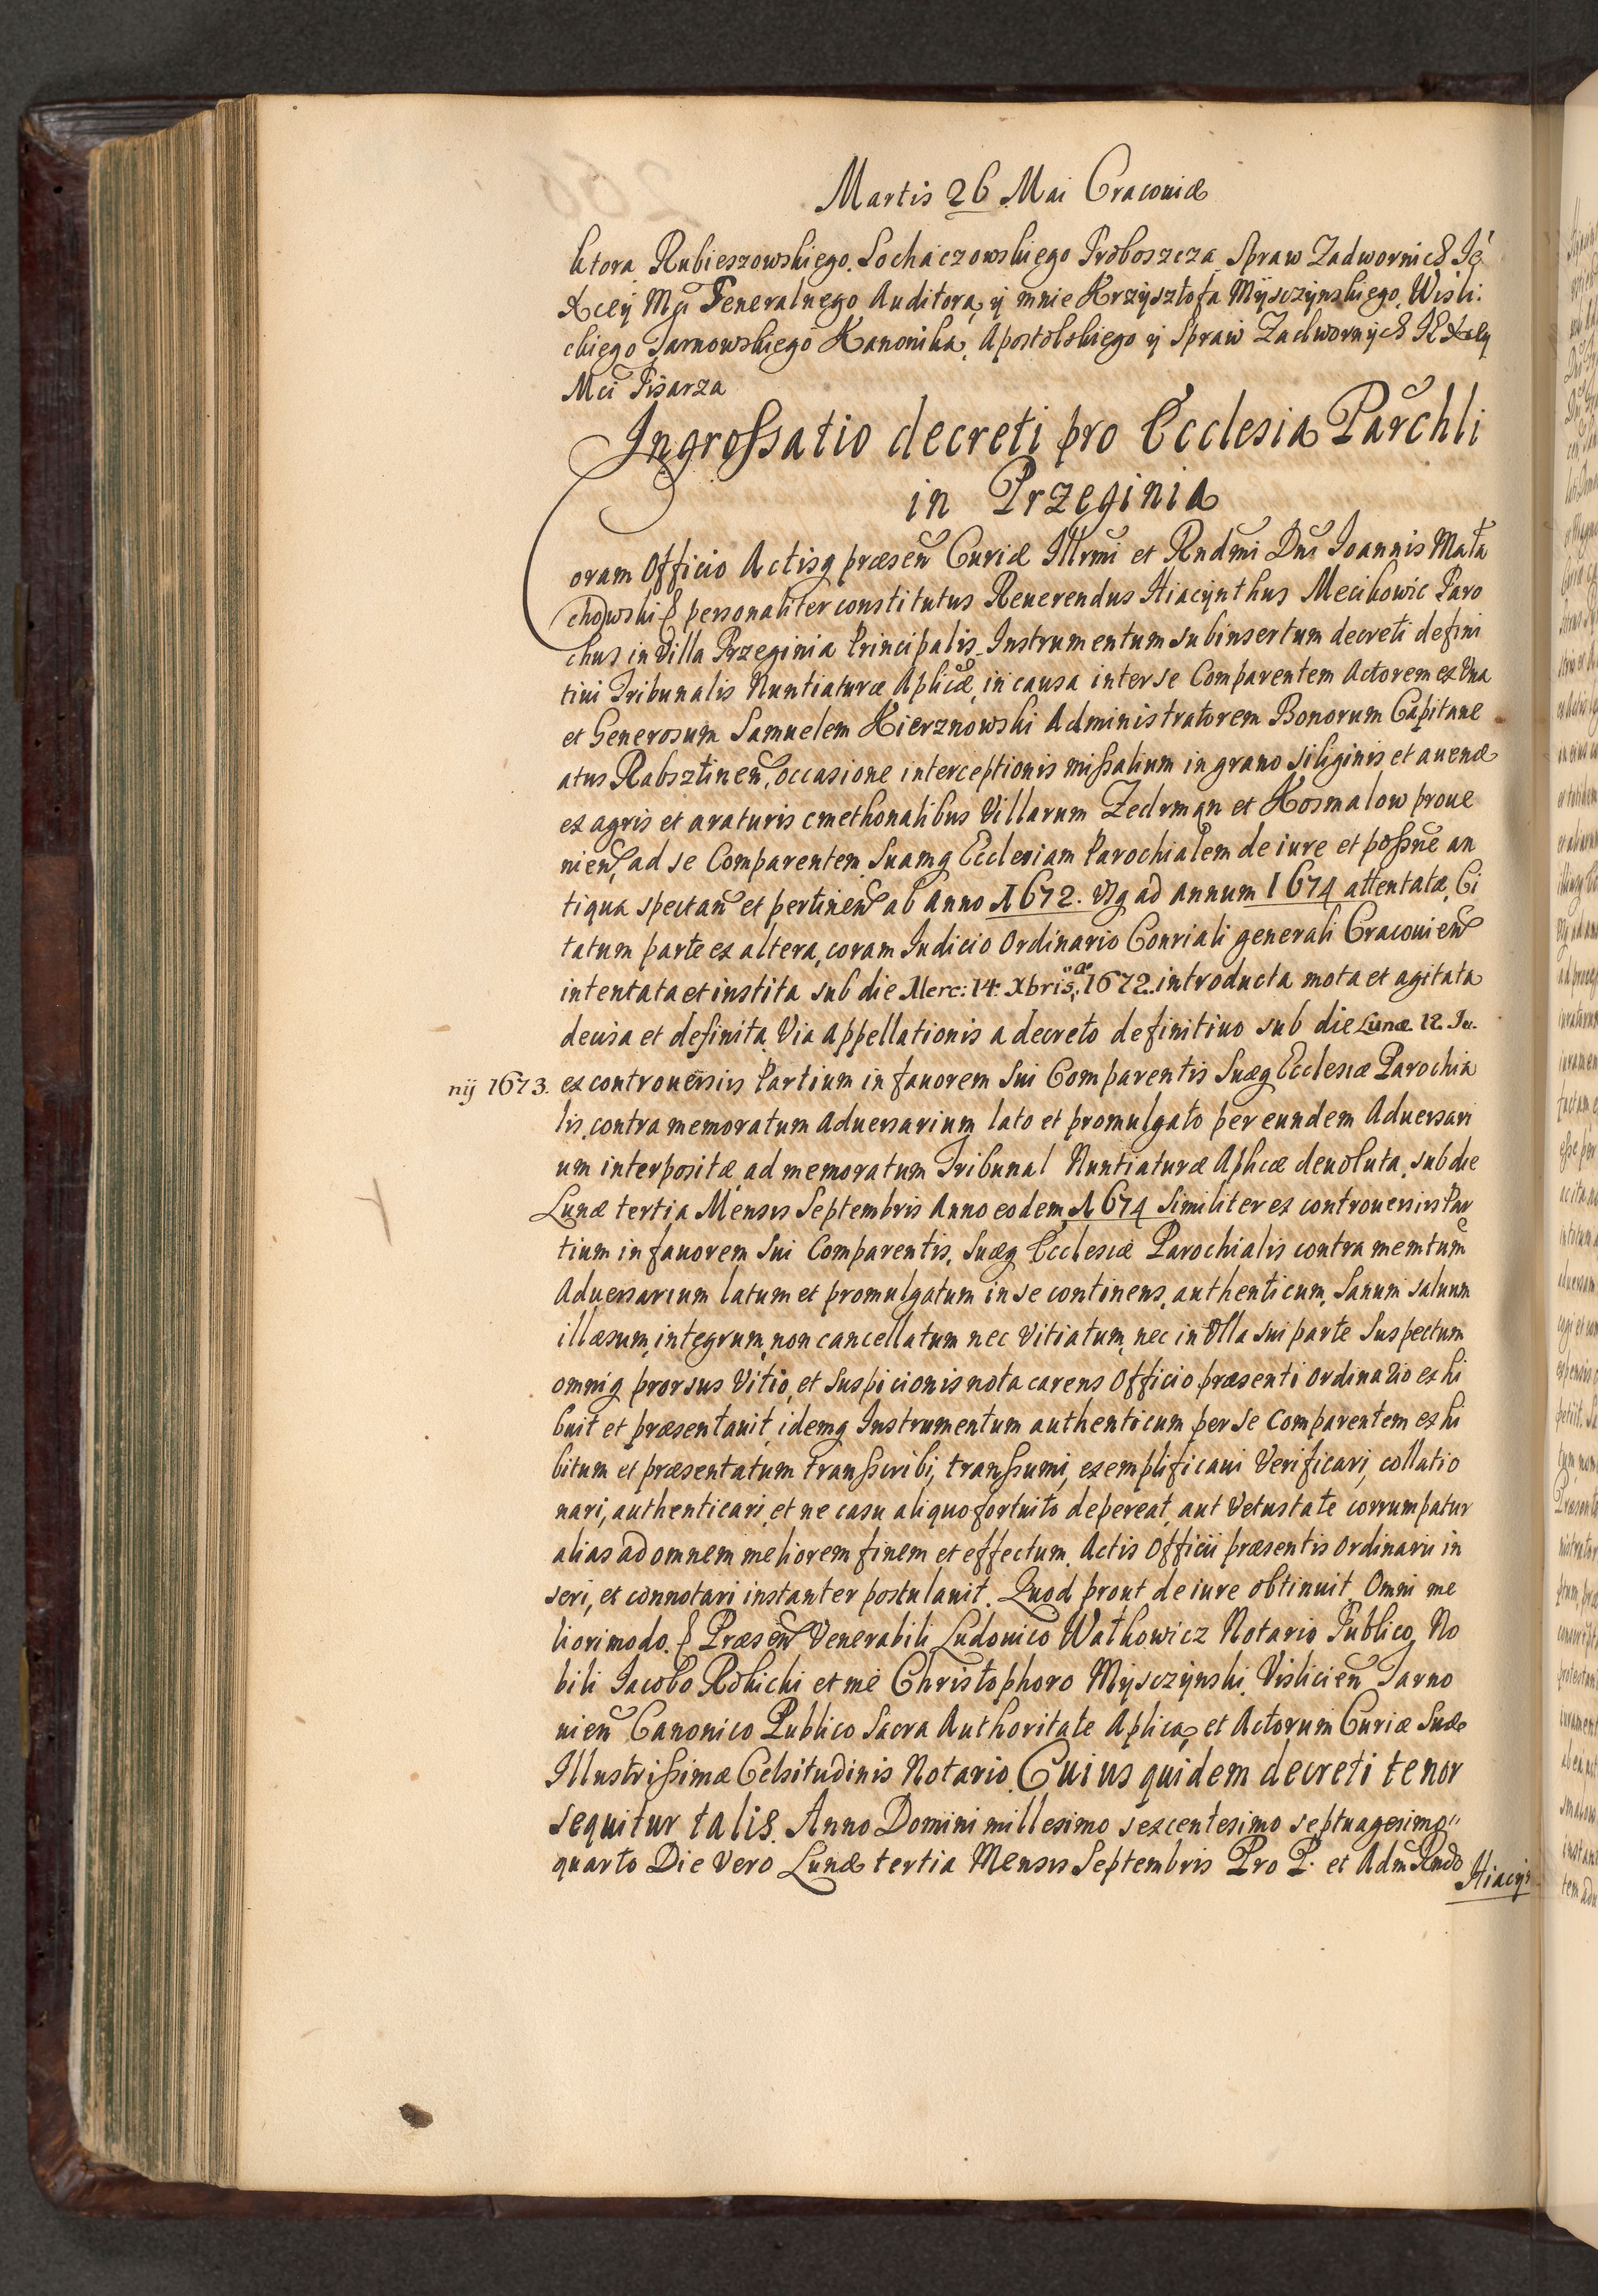 Martis 26 Mai Cracouiæ
ktora Rubieszowskiego. Sochaczowskiego Proboszcza Spraw Zadwornich Je
Xcey Mci Generalnego Auditora, y mnie Krzysztofa Mysczynskiego, Wisli:
ckiego Tarnowskiego Kanonika, Apostolskiego y Spraw Zadwornych JE Xcey
Mci Pisarza
Ingrossatio decreti pro Ecclesia Parchli
in Przeginia
Coram Officio Actisq præsen Curiæ Illrmi et Rndmi Dni Ioannis Mała
chowski & personaliter constitutus Reuerendus Hiacynthus Mecikowic Paro
chus in Villa Przeginia Principalis Instrumentum subinsertum decreti defini
tiui Tribunalis Nuntiaturæ Aplicæ, in causa inter se Comparentem Actorem ex Vna
et Generosum Samuelem Kierznowski Administratorem Bonorum Capitane
atus Rabsztinen, occasione interceptionis missalium in grano siliginis et auenæ
ex agris et araturis cmethonalibus Villarum Zedrman et Kosmalow proue
nien, ad se Comparentem Suamq Ecclesiam Parochialem de iure et possne an
tiqua spectan et pertinen ab Anno 1672. Vsq ad annum 1674 attentatæ, Ci
tatum parte ex altera, coram Iudicio Ordinario Consriali generali Cracouien
intentata et instita sub die Merc: 14. Xbris, 1672. introducta mota et agitata
decisa et definita Via Appellationis a decreto definitiuo sub die Lunæ 12. Iu.
nij 1673. ex controuersiis Partium in fauorem Sui Comparentis Suæq Ecclesiæ Parochia
lis, contra memoratum Aduersarium lato et promulgato per eundem Aduersari
um interpositæ, ad memoratum Tribunal Nuntiaturæ Aplicæ deuoluta, sub die
Lunæ tertia Mensis Septembris Anno eodem 1674 Similiter ex controuersiis Par
tium in fauorem Sui Comparentis, Suæq Ecclesiæ Parochialis contra memtum
Aduersarium latum et promulgatum in se continens, authenticum, Sanum saluum
illæsum, integrum, non cancellatum nec Vitiatum, nec in Vlla sui parte Suspectum
omniq prorsus Vitio, et Suspicionis nota carens Officio præsenti Ordinario exhi
buit et præsentauit, idemq Instrumentum authenticum per se Comparentem exhi
bitum et præsentatum transscribi, transsumi, exemplificaui Verificari, collatio
nari, authenticari, et ne casu aliquo fortuito depereat, aut Vetustate corrumpatur
alias ad omnem meliorem finem et effectum, Actis Officii præsentis Ordinarii in
seri, et connotari instanter postulauit. Quod prout de iure obtinuit. Omni me
liori modo. & Præsen Venerabili Ludouico Wałkowicz Notario Publico, No
bili Iacobo Rokicki et me Christophoro Mysczynski, Vislicien Tarno
uien Canonico Publico Sacra Authoritate Aplica, et Actorum Curiæ Suæ
Illustrissimæ Celsitudinis Notario. Cuius quidem decreti tenor
sequitur talis. Anno Domini millesimo sexcentesimo septuagesimo
quarto Die Vero Lunæ tertia Mensis Septembris Pro P. et Adm Rndo
Hiacyn